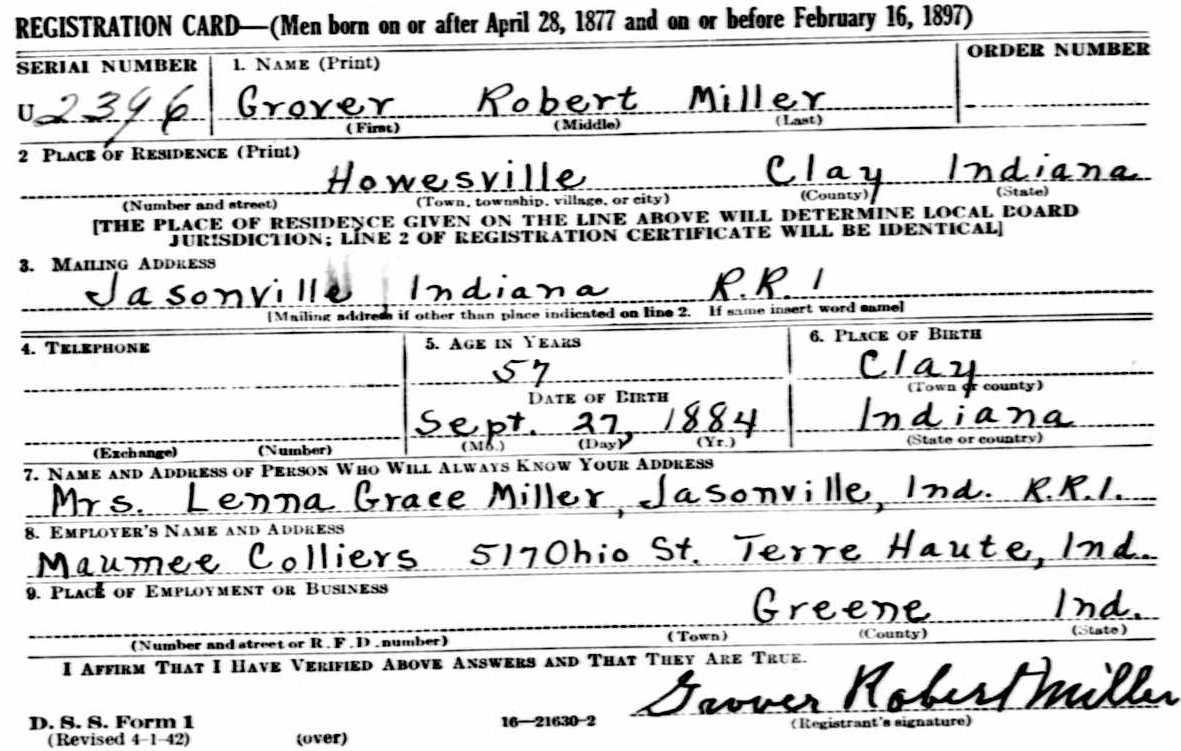 REGISTRATION CARD—(Men born on or after April 28, 1877 and on or before February 16, 1897)
SERIAL NUMBER 1. NAME (Print) ORDER NUMBER
U 2396 Grover Robert Miller
(First) (Middle) (Last)
2 PLACE OF RESIDENCE (Print)
Howesville Clay Indiana
(Number and street) (Town, township, village, or city) (County) (State)
[THE PLACE OF RESIDENCE GIVEN ON THE LINE ABOVE WILL DETERMINE LOCAL BOARD
JURISDICTION; LINE 2 OF REGISTRATION CERTIFICATE WILL BE IDENTICAL]
3. MAILING ADDRESS
Jasonville Indiana R.R. 1
[Mailing address if other than place indicated on line 2. If same insert word same]
4. TELEPHONE 5. AGE IN YEARS 6. PLACE OF BIRTH
57 Clay
(Town or county)
DATE OF BIRTH
Sept. 27, 1884 Indiana
(Exchange) (Number) (Mo.) (Day) (Yr.) (State or country)
7. NAME AND ADDRESS OF PERSON WHO WILL ALWAYS KNOW YOUR ADDRESS
Mrs. Lenna Grace Miller, Jasonville, Ind. R.R.1.
8. EMPLOYER'S NAME AND ADDRESS
Maumee Colliers 517 Ohio St. Terre Haute, Ind.
9. PLACE OF EMPLOYMENT OR BUSINESS
Greene Ind.
(Number and street or R. F. D. number) (Town) (County) (State)
I AFFIRM THAT I HAVE VERIFIED ABOVE ANSWERS AND THAT THEY ARE TRUE.
Grover Robert Miller
D. S. S. Form 1 16—21630-2 (Registrant's signature)
(Revised 4-1-42) (over)